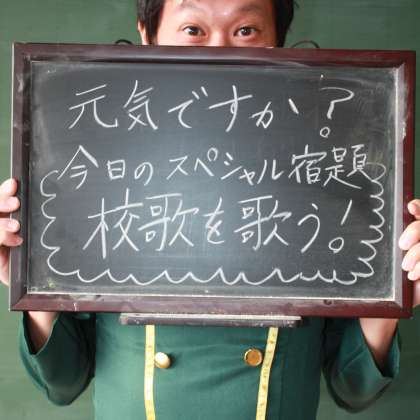 元気ですか?
今日のスペシャル宿題
校歌を歌う!